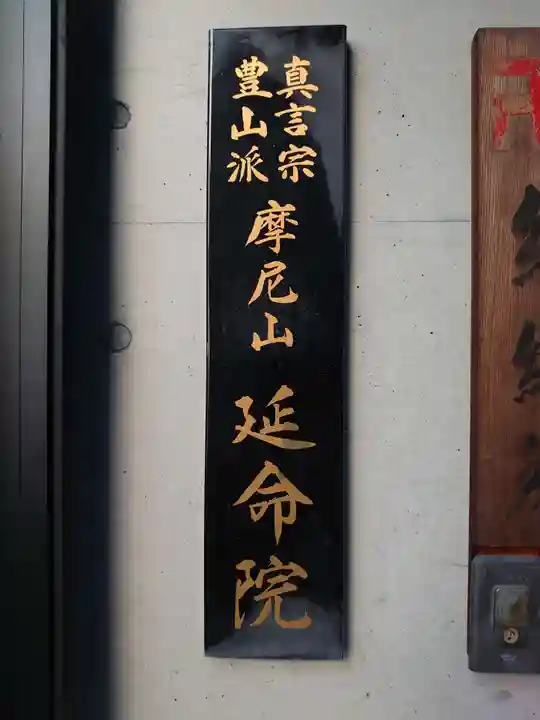 真言宗
豊山派
摩尼山
延命院